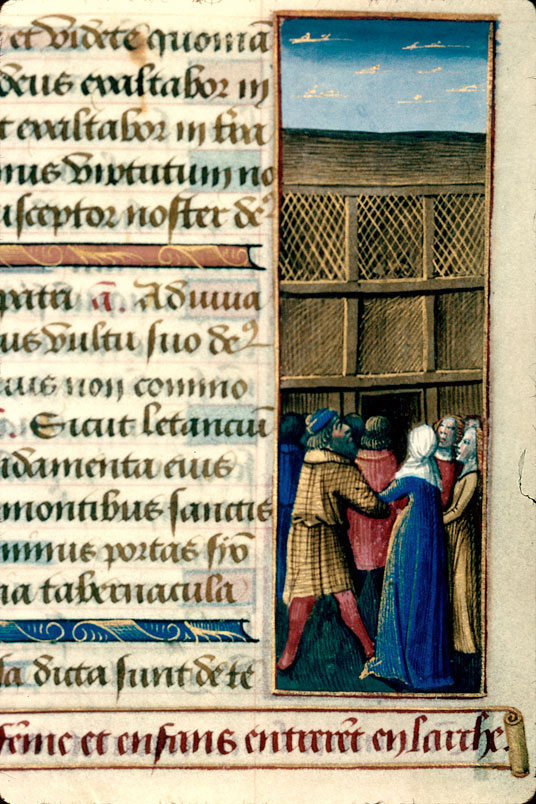 et videte quoniā
deus exaltabor in
t exaltabor in t̄ra
nus virtutum no
usceptor noster de⁹
pata a. Adiuua
us vultu suo de⁹
uus non commo
. Sicut letanciū
damenta eius
montibus sanctis
minus portas syō
na tabernacula
sa dicta sunt de te
fēme et enfans entrerēt en larche.